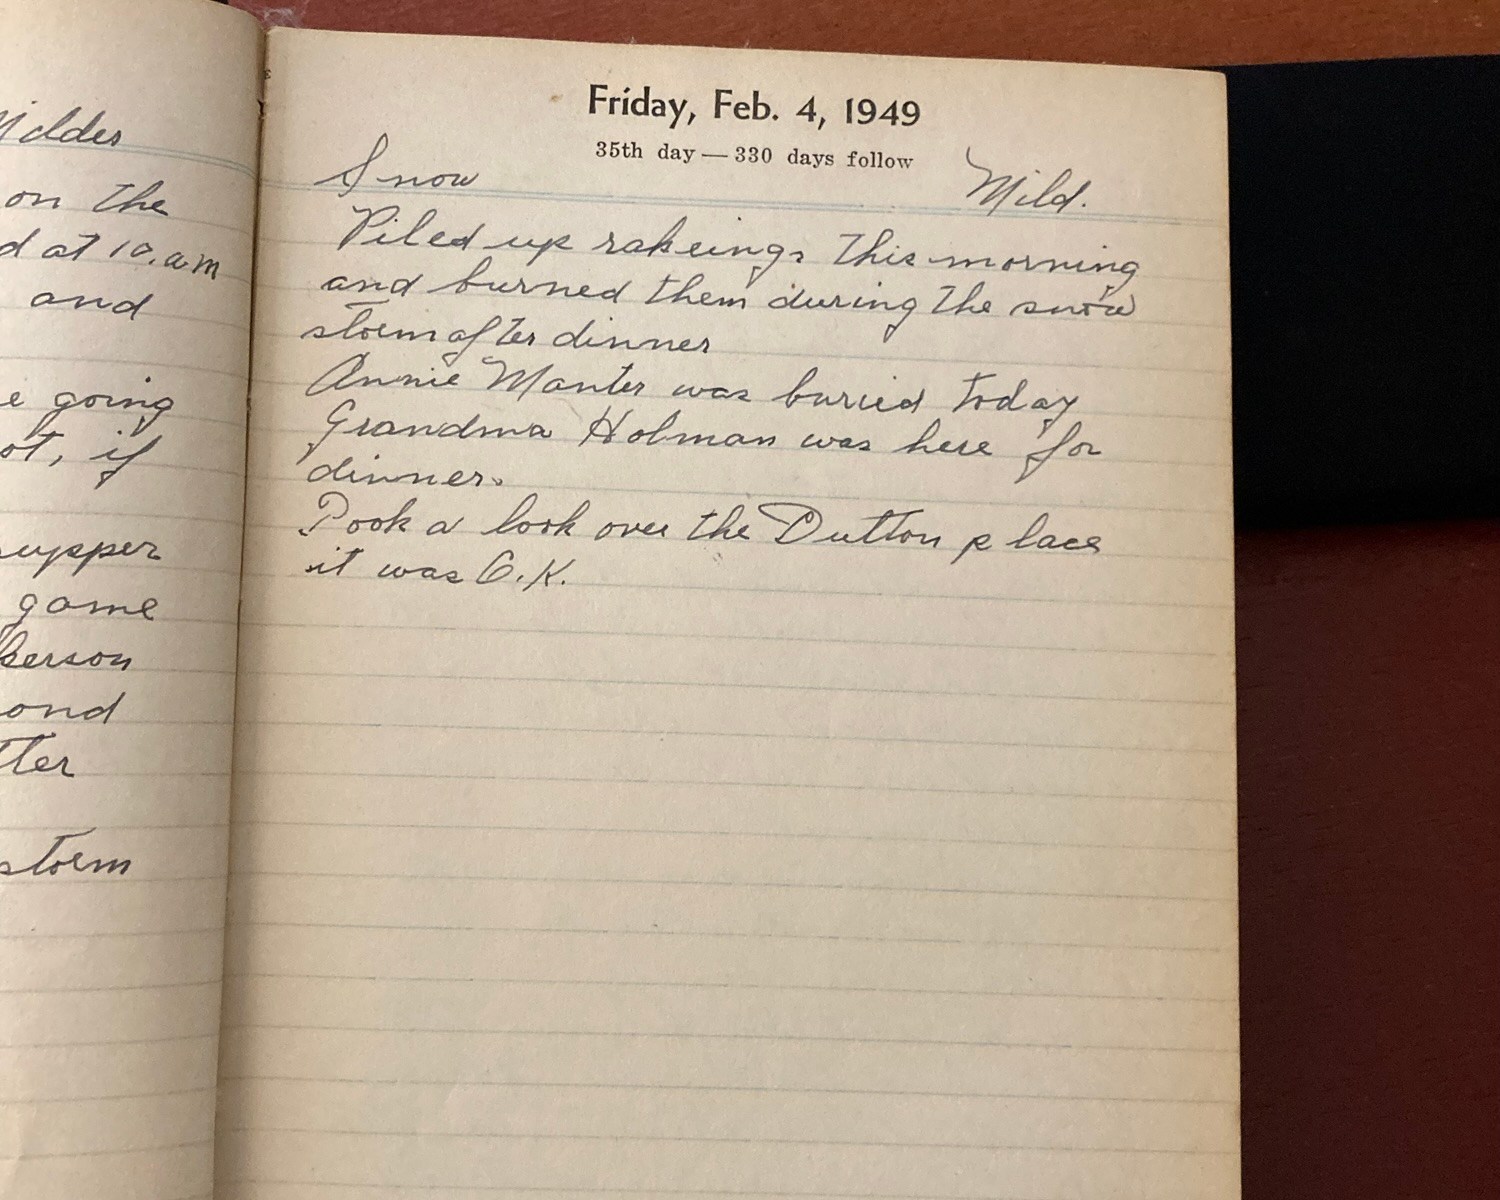 Milder
on the
d at 10.a.m
and
e going
ot, if
supper
game
kerson
ond
tter
storm
Friday, Feb. 4, 1949
35th day — 330 days follow
Snow Mild.
Piled up rakeings this morning
and burned them during the snow
storm after dinner
Annie Manter was buried today
Grandma Holman was here for
dinner.
Took a look over the Dutton place
it was O.K.